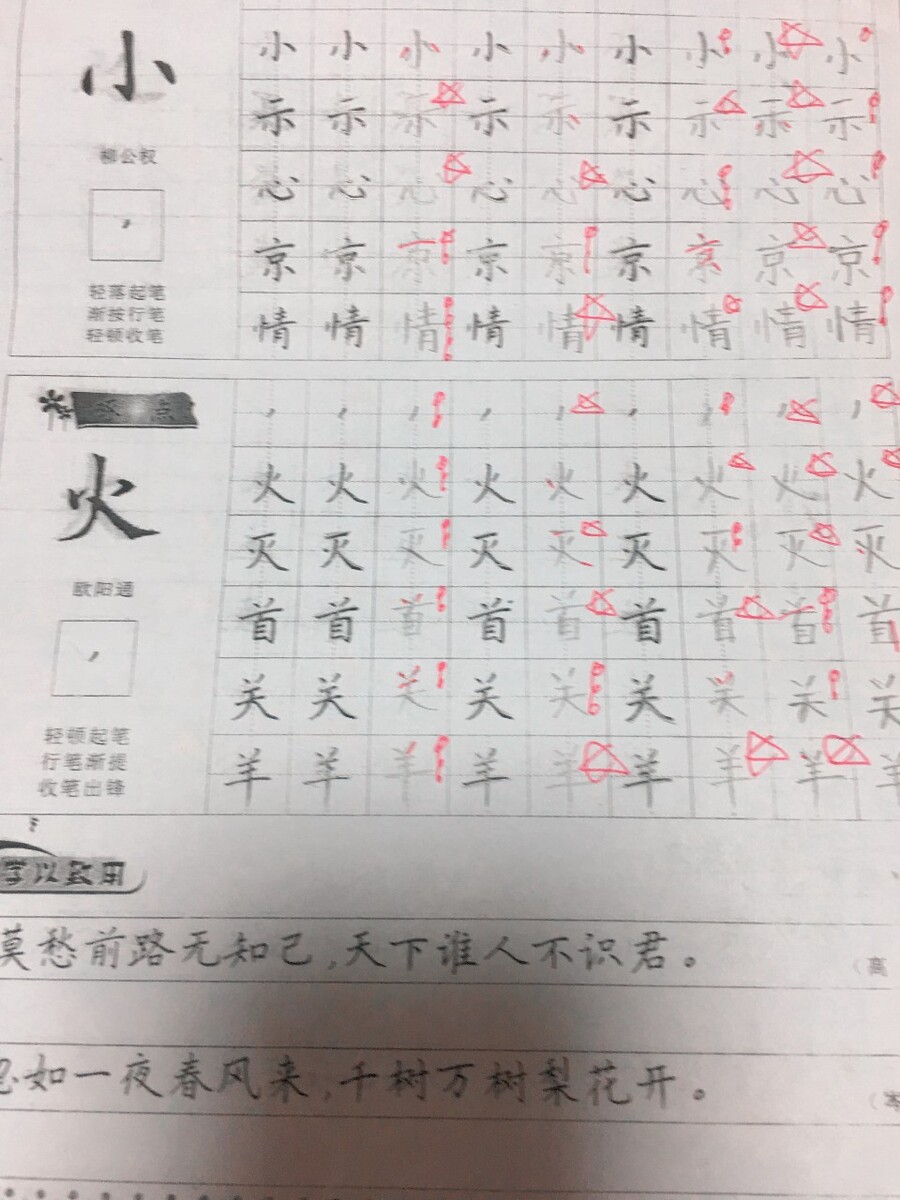 小
柳公权
轻落起笔
渐按行笔
轻顿收笔
小 小 小 小 小 小 小 小 小
示 示 示 示 示 示 示 示 示
心 心 心 心 心 心 心 心 心
京 京 京 京 京 京 京 京 京
情 情 情 情 情 情 情 情 情
点
火
欧阳通
轻顿起笔
行笔渐提
收笔出锋
火 火 火 火 火 火 火 火 火
灭 灭 灭 灭 灭 灭 灭 灭 灭
首 首 首 首 首 首 首 首 首
关 关 关 关 关 关 关 关 关
羊 羊 羊 羊 羊 羊 羊 羊 羊
学以致用
莫愁前路无知己,天下谁人不识君。 (高
忽如一夜春风来,千树万树梨花开。 (岑